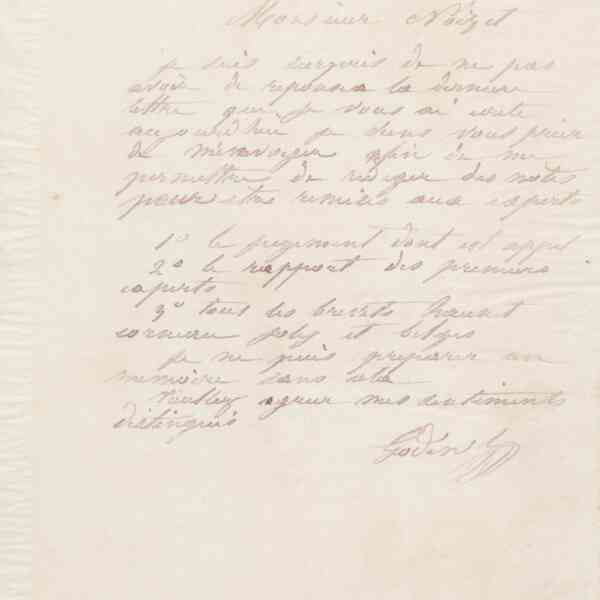 Monsieur Noizet
je suis surpris de ne pas
avoir de reponse a la derniere
lettre que je vous ai ecrite
aujourdhui je viens vous prier
de m'envoyer afin de me
permettre de rediger des notes
pour etre remises aux experts
1º le jugement dont est appel
2º le rapport des premiers
experts
3º tous les brevets haunt
corneau joly et belges
je ne puis preparer un
memoire sans cela
Veuillez agreer mes sentiments
distingués
Godin